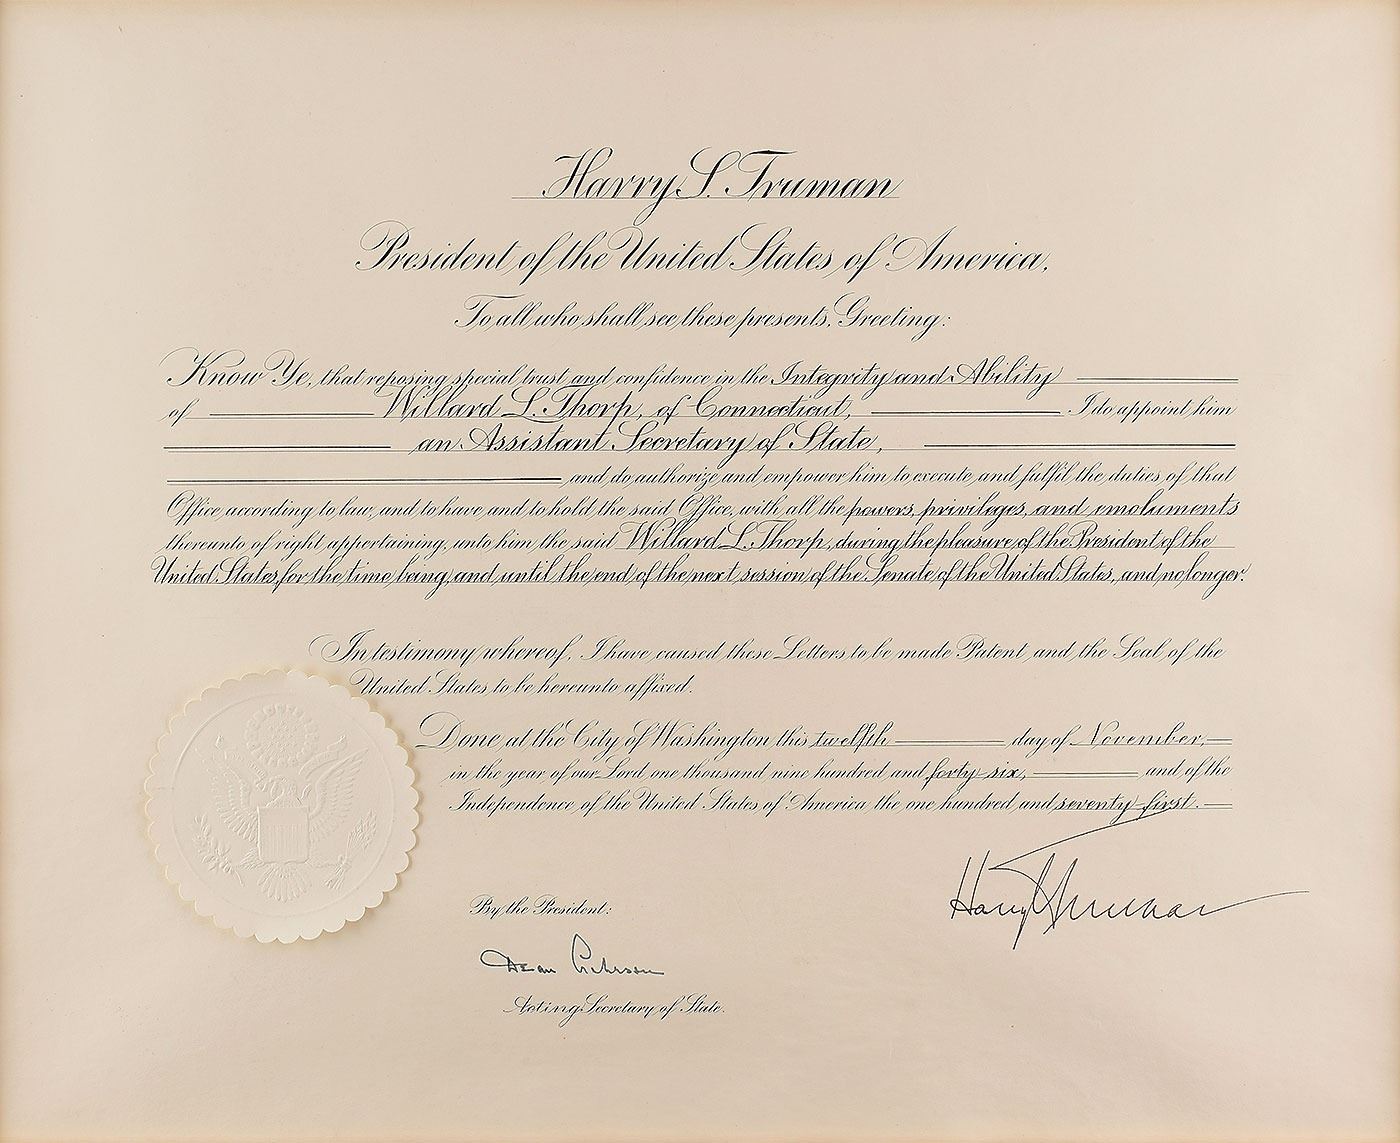 Harry S. Truman
President of the United States of America,
To all who shall see these presents, Greeting:
Know Ye, that reposing special trust and confidence in the Integrity and Ability
of Willard L. Thorp, of Connecticut, I do appoint him
an Assistant Secretary of State,
and do authorize and empower him to execute and fulfil the duties of that
Office according to law, and to have and to hold the said Office, with all the powers, privileges, and emoluments
thereunto of right appertaining, unto him the said Willard L. Thorp, during the pleasure of the President of the
United States, for the time being, and until the end of the next session of the Senate of the United States, and no longer.
In testimony whereof, I have caused these Letters to be made Patent and the Seal of the
United States to be hereunto affixed.
Done at the City of Washington this twelfth day of November,
in the year of our Lord one thousand nine hundred and forty-six, and of the
Independence of the United States of America the one hundred and seventy-first.
Harry S Truman
By the President:
Dean Acheson
Acting Secretary of State.